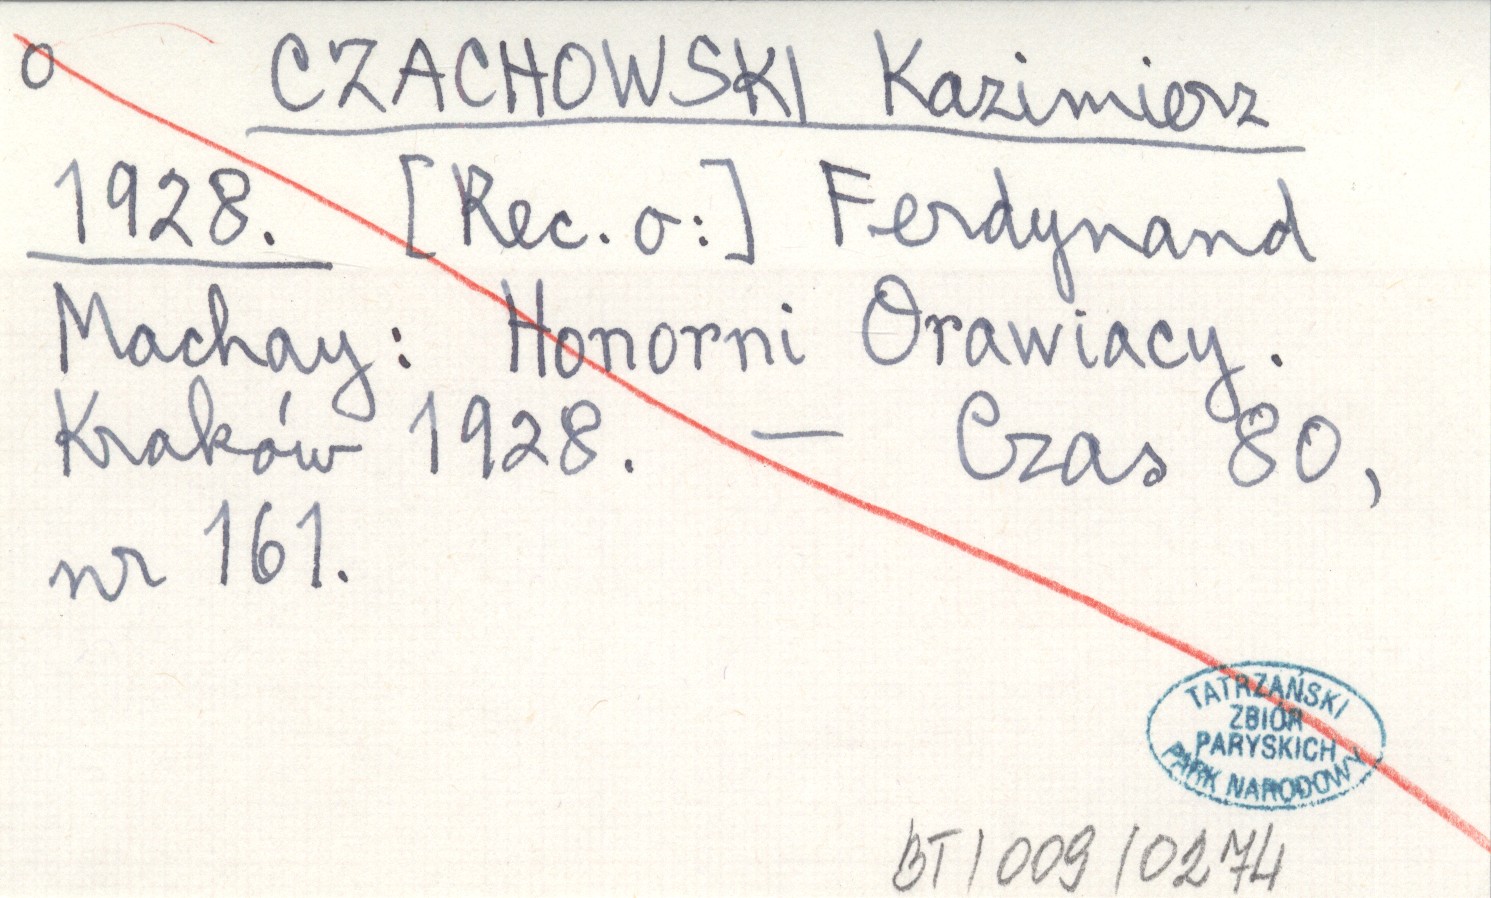 o CZACHOWSKI Kazimierz
1928. [Rec. o:] Ferdynand
Machay: Honorni Orawiacy.
Kraków 1928. — Czas 80,
nr 161.
TATRZAŃSKI
ZBIÓR
PARYSKICH
PARK NARODOWY
BT/009/0274